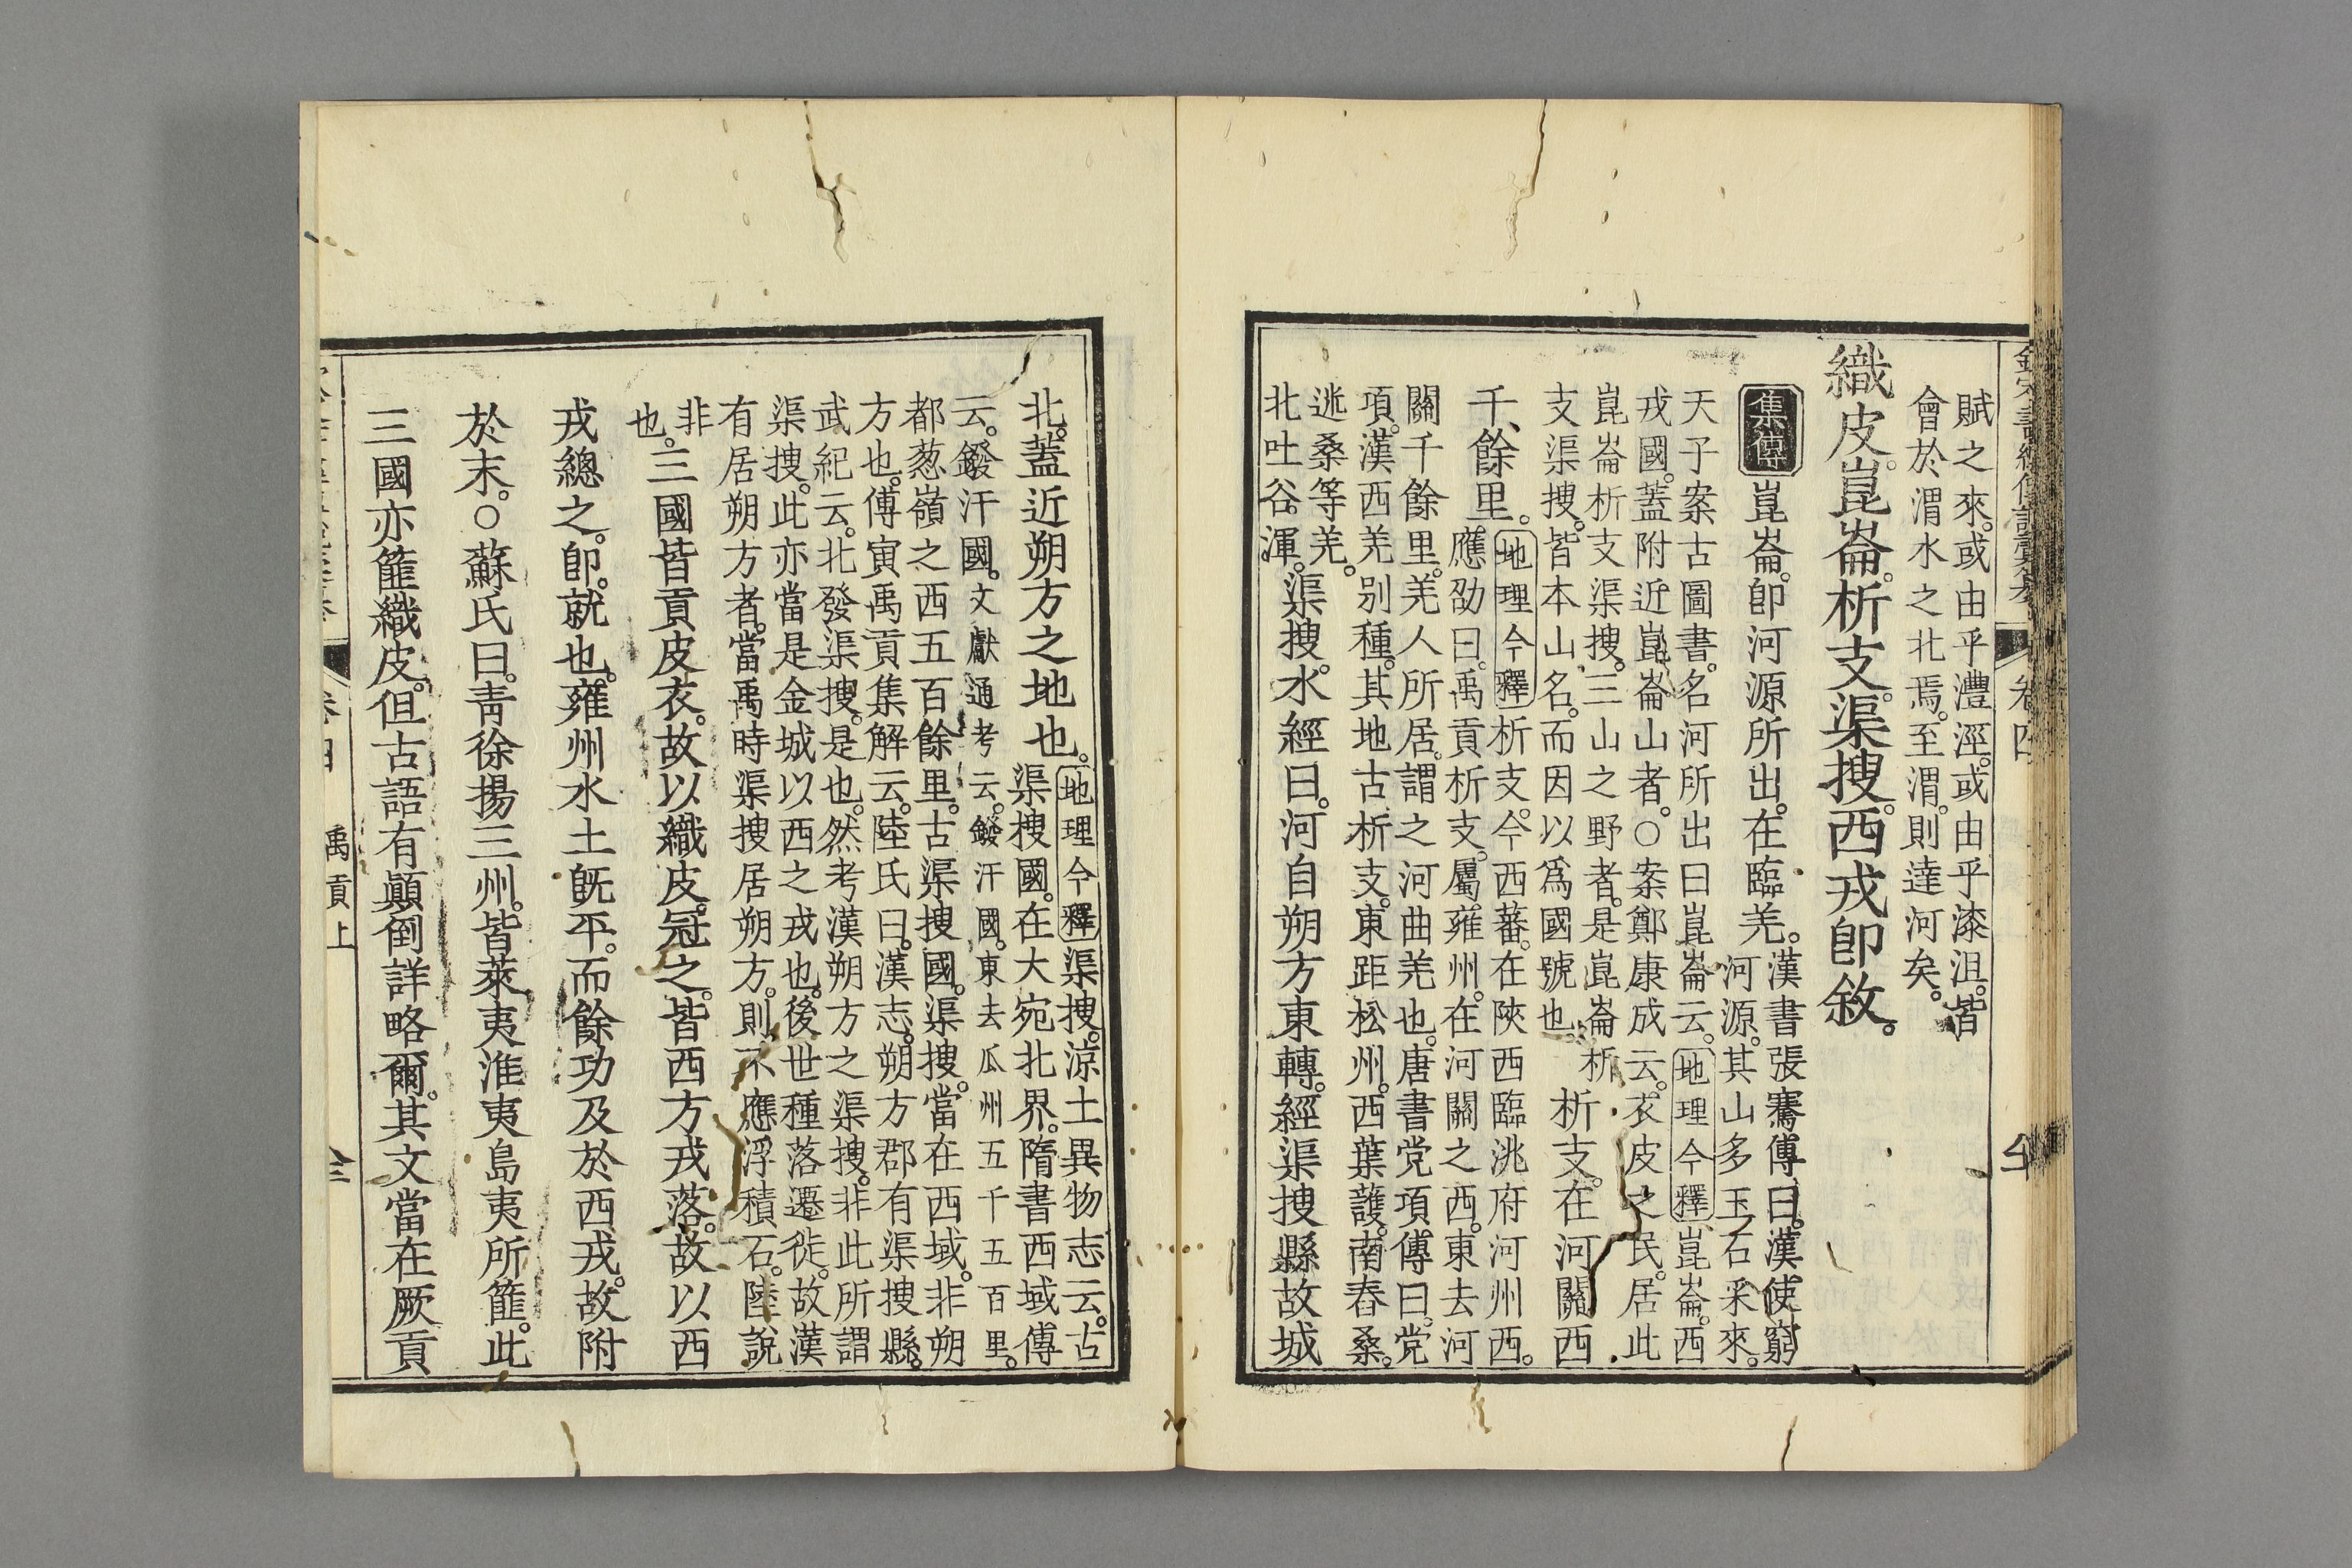 欽定書經傳說彙纂 卷四
賦之來。或由乎灃涇。或由乎漆沮。皆
會於渭水之北焉。至渭。則達河矣。
織皮崑崙。析支。渠搜。西戎卽敘。
集傳 崑崙。卽河源所出。在臨羌。漢書張騫傳曰。漢使窮
河源。其山多玉石。采來。
天子案古圖書。名河所出曰崑崙云。地理今釋 崑崙。西
戎國。蓋附近崑崙山者。○案鄭康成云。衣皮之民。居此
崑崙析支渠搜。三山之野者。是崑崙析
支渠搜。皆本山名。而因以爲國號也。
析支。在河關西
千餘里。
地理今釋 析支。今西蕃。在陝西臨洮府河州西。
應劭曰。禹貢析支。屬雍州。在河關之西。東去河
關千餘里。羌人所居。謂之河曲羌也。唐書党項傳曰。党
項。漢西羌别種。其地古析支。東距松州。西葉護。南舂桑。
迷桑等羌。
北吐谷渾。
渠搜。水經曰。河自朔方東轉。經渠搜縣故城
北。蓋近朔方之地也。
地理今釋 渠搜。涼土異物志云。古
渠搜國。在大宛北界。隋書西域傳
云。鏺汗國。文獻通考云。鏺汗國。東去瓜州五千五百里。
都葱嶺之西五百餘里。古渠搜國。渠搜。當在西域。非朔
方也。傅寅禹貢集解云。陸氏曰。漢志。朔方郡有渠搜縣。
武紀云。北發渠搜。是也。然考漢朔方之渠搜。非此所謂
渠搜。此亦當是金城以西之戎也。後世種落遷徙。故漢
有居朔方者。當禹時渠搜居朔方。則不應浮積石。陸說
非
也。
三國皆貢皮衣。故以織皮。冠之。皆西方戎落。故以西
戎總之。卽。就也。雍州水土旣平。而餘功及於西戎。故附
於末。○蘇氏曰。靑徐揚三州。皆萊夷淮夷島夷所篚。此
三國亦篚織皮。但古語有顚倒詳略爾。其文當在厥貢
卷四 禹貢上